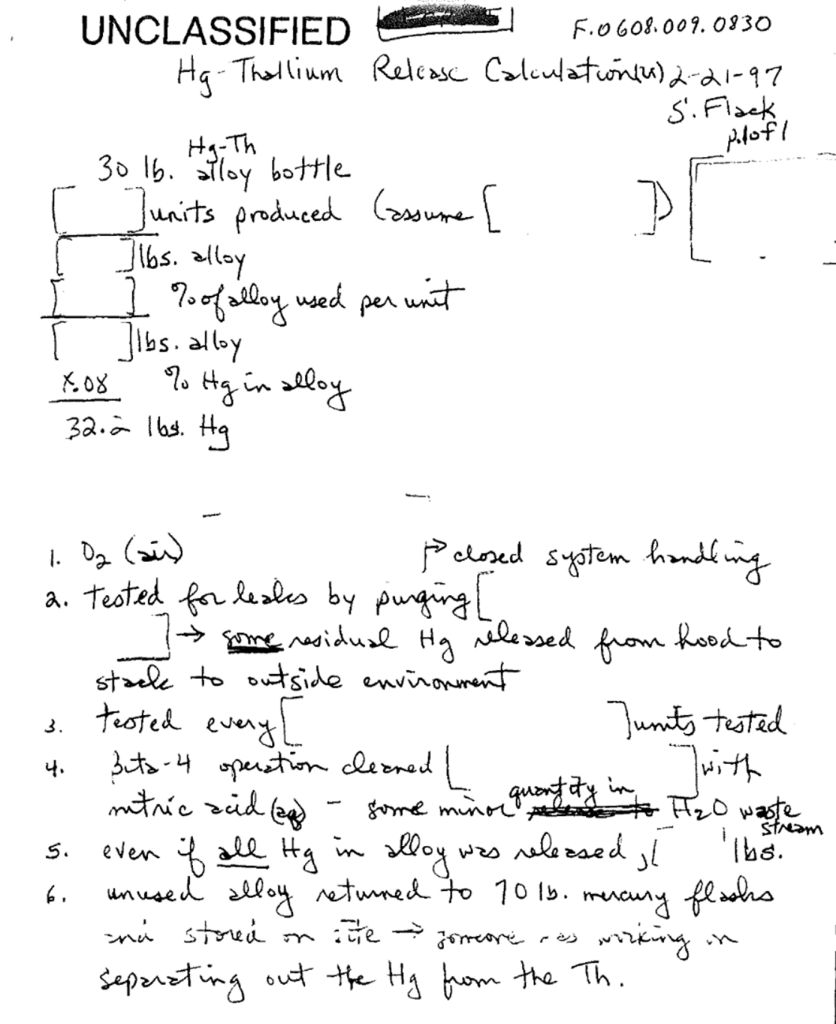 UNCLASSIFIED
F.0608.009.0830
Hg-Thallium Release Calculation(u) 2-21-97
S. Flack
p.1of1
Hg-Th
30 lb. alloy bottle
[ ] units produced (assume [ ])
[ ] lbs. alloy
[ ] % of alloy used per unit
[ ] lbs. alloy
x.08 % Hg in alloy
32.2 lbs. Hg
1. O2 (air) → closed system handling
2. tested for leaks by purging [
] → some residual Hg released from hood to
stack to outside environment
3. tested every [ ] units tested
4. Beta-4 operation cleaned [ ] with
nitric acid (aq) - some minor quantity in H2O waste
stream
5. even if all Hg in alloy was released, [ ] lbs.
6. unused alloy returned to 70 lb. mercury flasks
and stored on site → someone was working on
separating out the Hg from the Th.